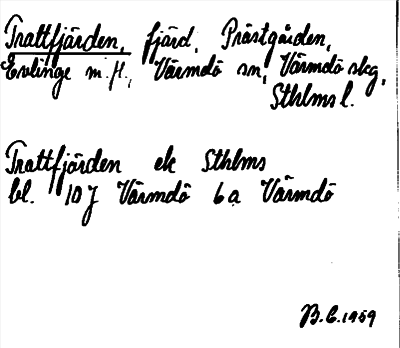 Trattfjärden, fjärd, Prästgården,
Evlinge m. fl., Värmdö sn, Värmdö skg,
Sthlms l.
Trattfjärden ek Sthlms
bl. 10 J Värmdö 6 a Värmdö
B.C. 1959